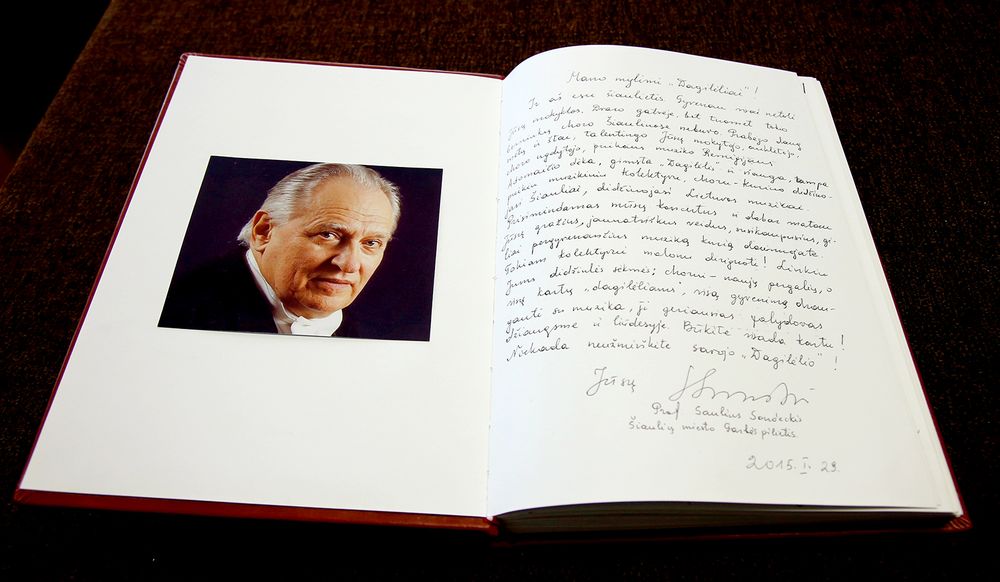 Mano mylimi „Dagilėliai"!
Ir aš esu šiaulietis. Gyvenau visai netoli
Jūsų mokyklos, Dvaro gatvėje, bet tuomet tokio
berniukų choro Šiauliuose nebuvo. Prabėgo daug
metų ir štai, talentingo Jūsų mokytojo, auklėtojo,
choro ugdytojo, puikaus muziko Remigijaus
Adomaičio dėka, gimsta „Dagilėlis" ir išauga, tampa
puikiu muzikiniu kolektyvu, choru - kuriuo didžiuo-
jasi Šiauliai, didžiuojasi Lietuvos muzikai.
Prisimindamas mūsų koncertus ir dabar matau
Jūsų gražius, jaunatviškus veidus, susikaupusius, gi-
liai pergyvenančius muziką kurią dainuojate.
Tokiam kolektyvui malonu diriguoti! Linkiu
Jums didžiulės sėkmės; chorui - naujų pergalių, o
visų kartų „dagilėliams", visą gyvenimą drau-
gauti su muzika, ji geriausias palydovas
džiaugsme ir liūdesyje. Būkite visada kartu!
Niekada neužmirškite savojo „Dagilėlio"!
Jūsų
Prof Saulius Sondeckis
Šiaulių miesto Garbės pilietis
2015. I. 29.